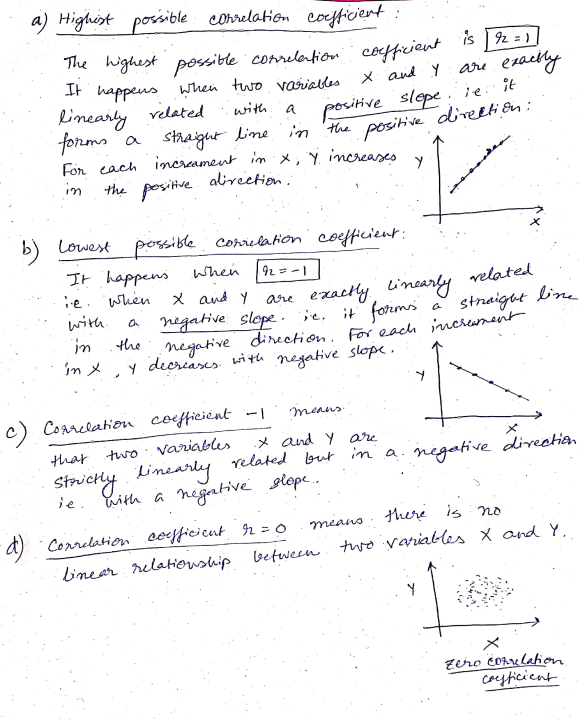 a) Highest possible correlation coefficient :
The highest possible correlation coefficient is r = 1
It happens when two variables X and Y are exactly
linearly related with a positive slope. i.e. it
forms a straight line in the positive direction :
For each increament in X, Y increases
in the positive direction.
Y
X
b) Lowest possible correlation coefficient:
It happens when r = -1
i.e. when X and Y are exactly linearly related
with a negative slope. i.e. it forms a straight line
in the negative direction. For each increament
in X, Y decreases with negative slope.
Y
X
c) Correlation coefficient -1 means
that two variables X and Y are
strictly linearly related but in a negative direction
i.e with a negative slope.
d) Correlation coefficient r = 0 means there is no
linear relationship between two variables X and Y.
Y
X
Zero correlation
coefficient